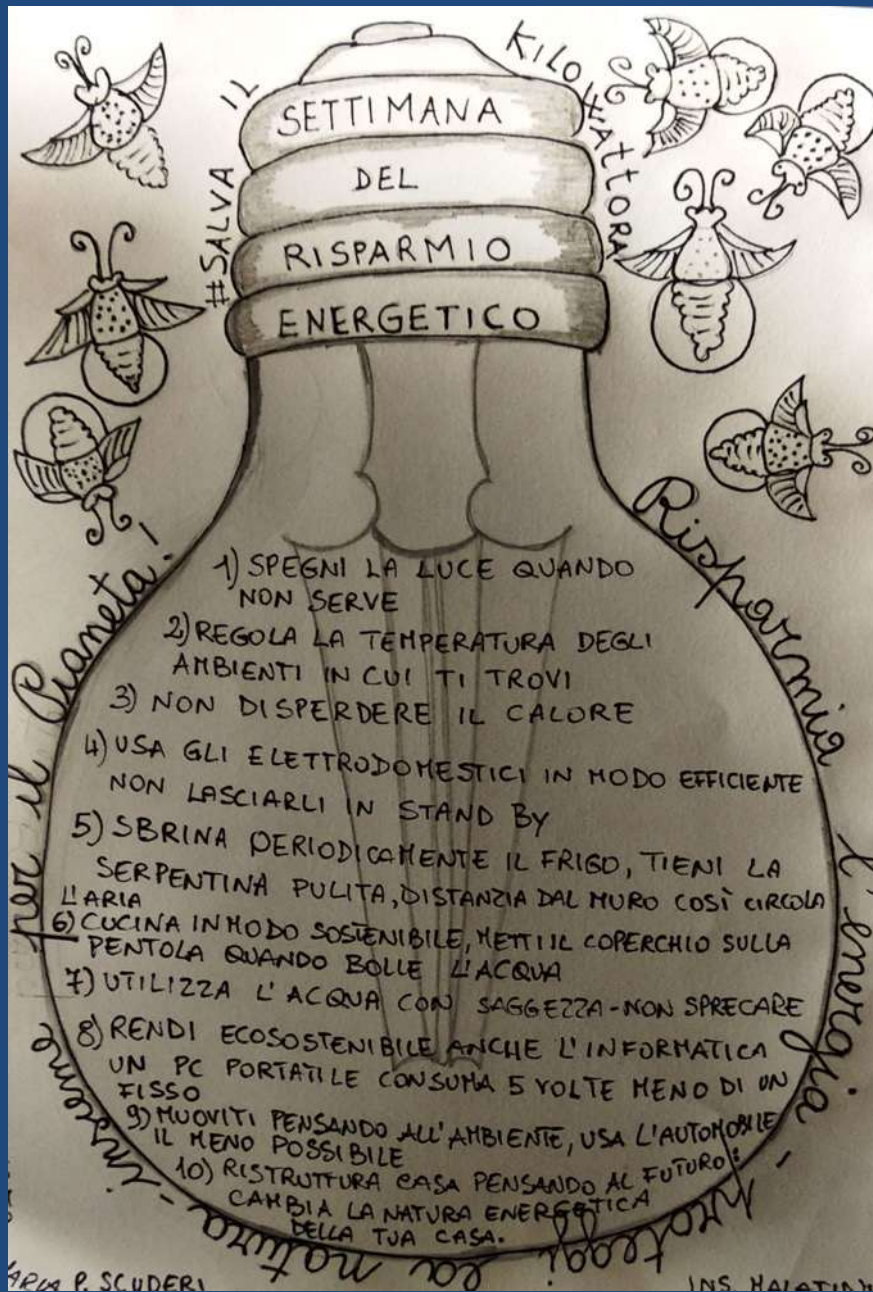 #SALVA IL KILOWATTORA
SETTIMANA
DEL
RISPARMIO
ENERGETICO
1) SPEGNI LA LUCE QUANDO
NON SERVE
2) REGOLA LA TEMPERATURA DEGLI
AMBIENTI IN CUI TI TROVI
3) NON DISPERDERE IL CALORE
4) USA GLI ELETTRODOMESTICI IN MODO EFFICIENTE
NON LASCIARLI IN STAND BY
5) SBRINA PERIODICAMENTE IL FRIGO, TIENI LA
SERPENTINA PULITA, DISTANZIA DAL MURO COSÌ CIRCOLA
L'ARIA
6) CUCINA IN MODO SOSTENIBILE, METTI IL COPERCHIO SULLA
PENTOLA QUANDO BOLLE L'ACQUA
7) UTILIZZA L'ACQUA CON SAGGEZZA - NON SPRECARE
8) RENDI ECOSOSTENIBILE ANCHE L'INFORMATICA
UN PC PORTATILE CONSUMA 5 VOLTE MENO DI UN
FISSO
9) MUOVITI PENSANDO ALL'AMBIENTE, USA L'AUTOMOBILE
IL MENO POSSIBILE
10) RISTRUTTURA CASA PENSANDO AL FUTURO:
CAMBIA LA NATURA ENERGETICA
DELLA TUA CASA.
Risparmia l'energia - proteggi la natura - insieme per il Pianeta!
P. SCUDERI
INS.